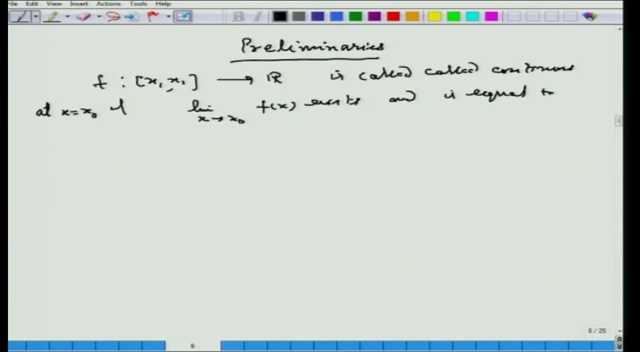 File Edit View Insert Actions Tools Help
Preliminaries
f : [x, x₁] → ℝ is called called continuous
at x=x₀ if lim x→x₀ f(x) exists and is equal to
8 / 25
8